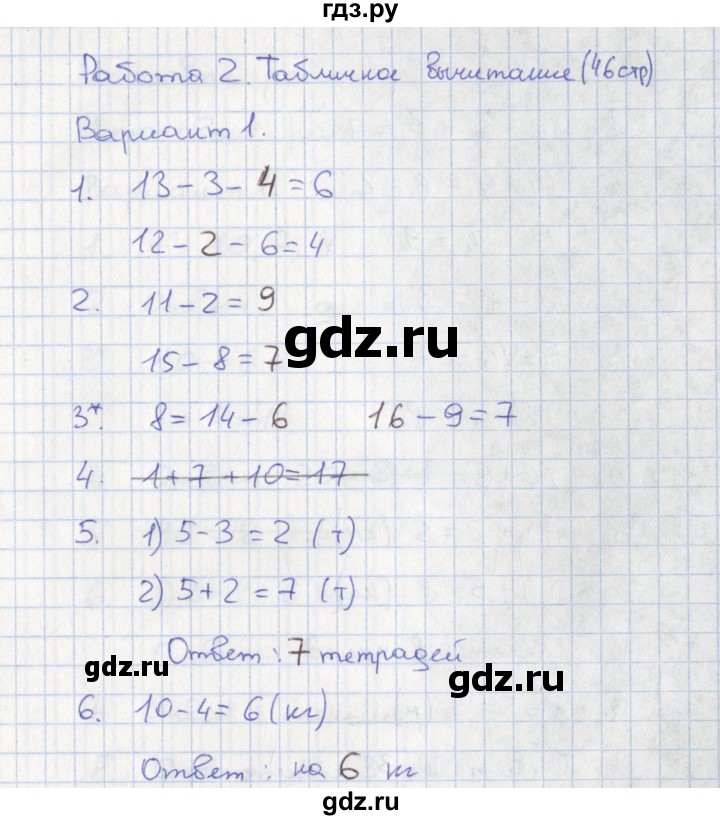 гдз.ру
Работа 2. Табличное вычитание (46 стр)
Вариант 1.
1. 13 - 3 - 4 = 6
12 - 2 - 6 = 4
2. 11 - 2 = 9
gdz.ru
15 - 8 = 7
3*. 8 = 14 - 6 16 - 9 = 7
4. 1 + 7 + 10 = 17
5. 1) 5 - 3 = 2 (т)
2) 5 + 2 = 7 (т)
Ответ: 7 тетрадей
gdz.ru
gdz.ru
6. 10 - 4 = 6 (кг)
Ответ: на 6 кг
gdz.ru